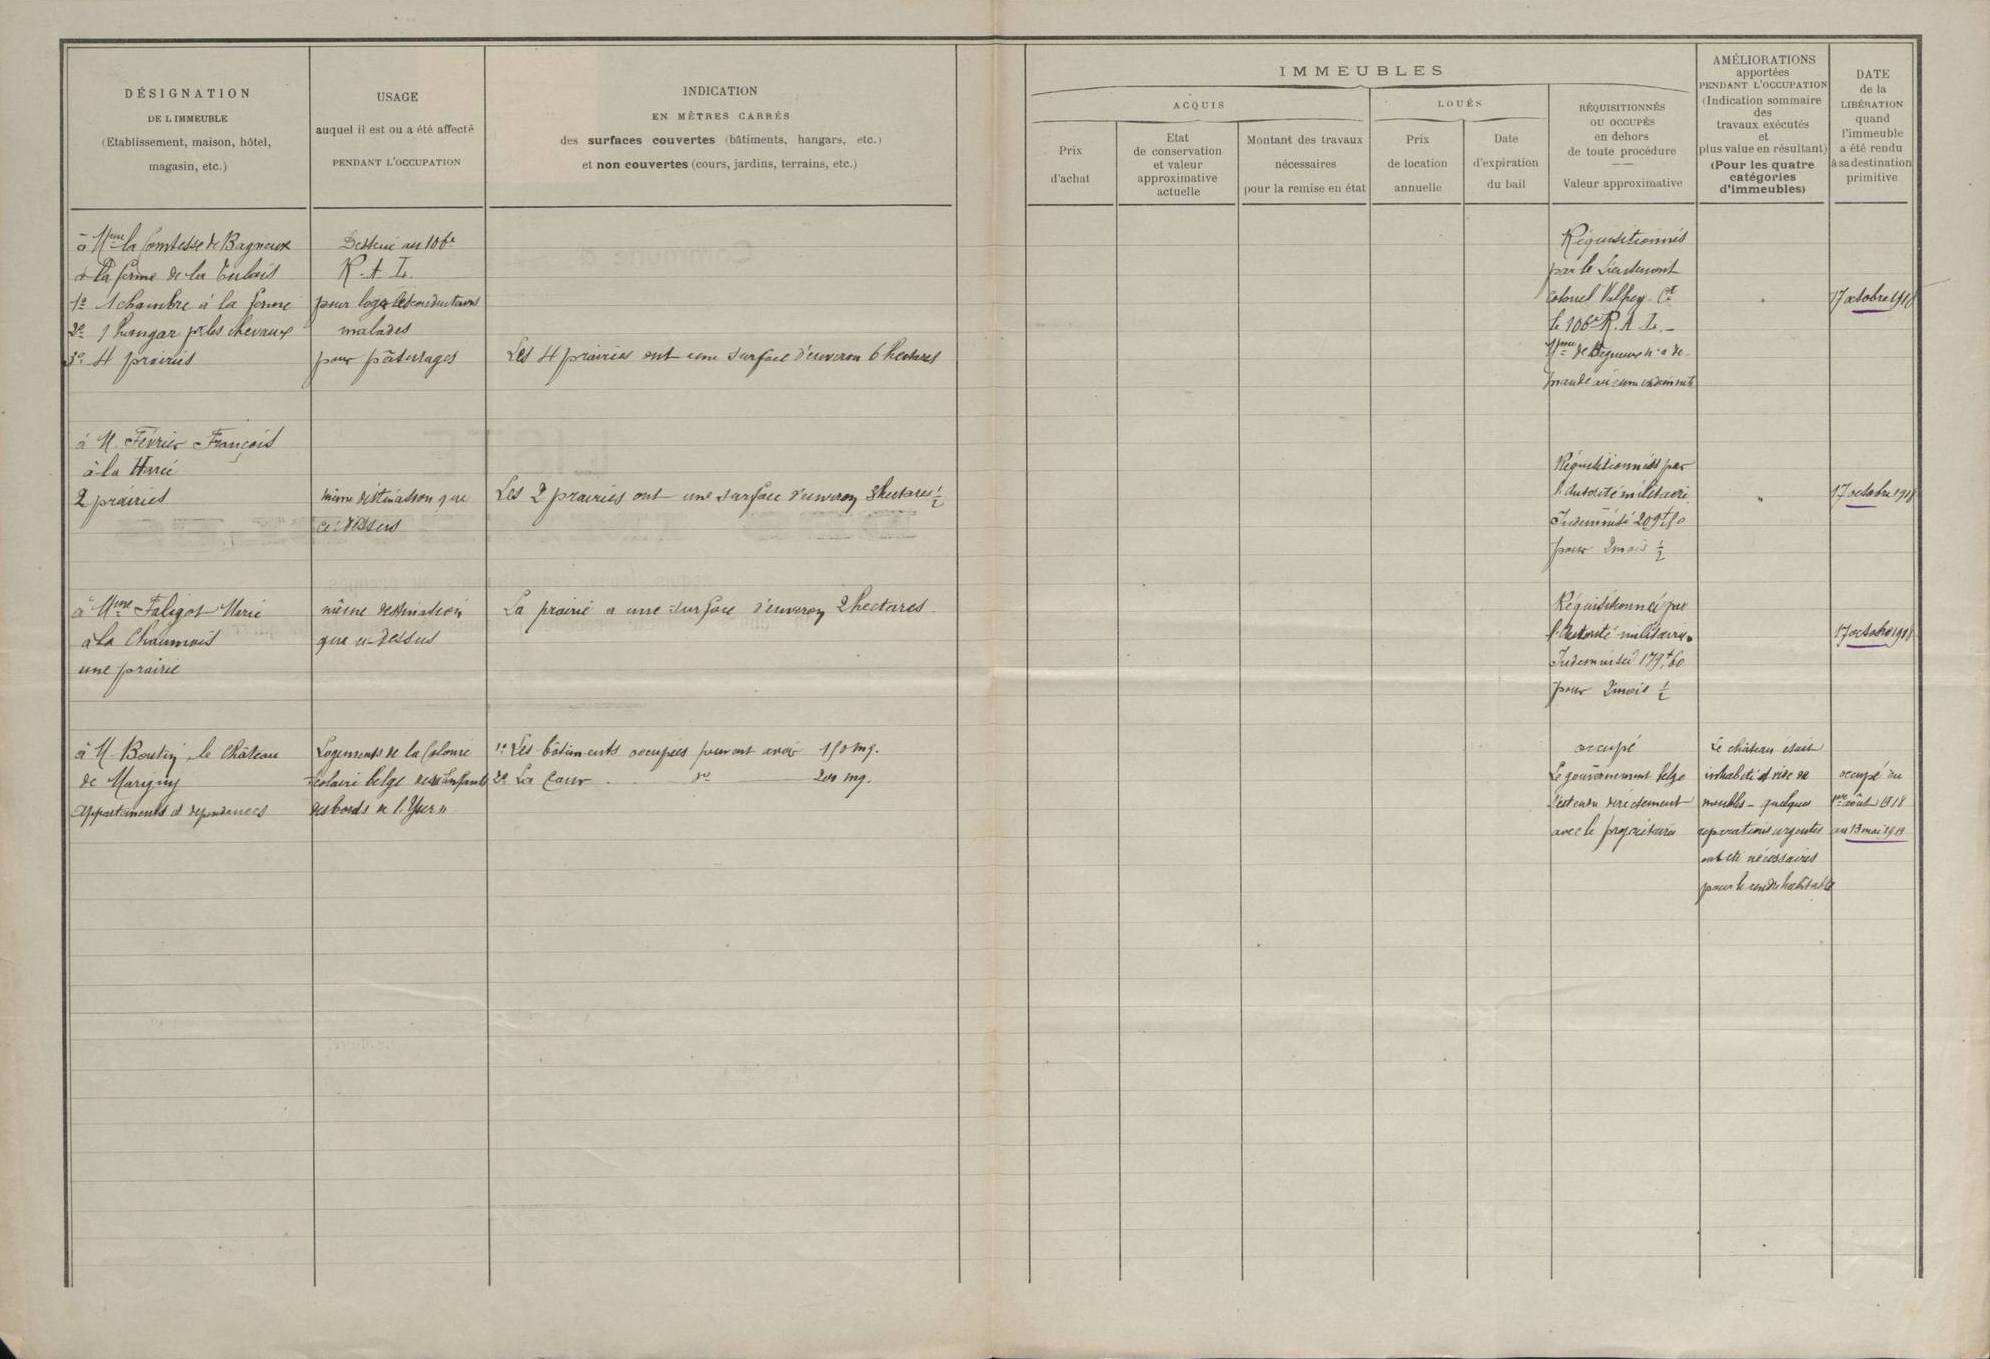 DÉSIGNATION
DE L'IMMEUBLE
(Etablissement, maison, hôtel,
magasin, etc.)
USAGE
auquel il est ou a été affecté
PENDANT L'OCCUPATION
INDICATION
EN MÈTRES CARRÉS
des surfaces couvertes (bâtiments, hangars, etc.)
et non couvertes (cours, jardins, terrains, etc.)
IMMEUBLES
ACQUIS
Prix
d'achat
Etat
de conservation
et valeur
approximative
actuelle
Montant des travaux
nécessaires
pour la remise en état
LOUÉS
Prix
de location
annuelle
Date
d'expiration
du bail
RÉQUISITIONNÉS
OU OCCUPÉS
en dehors
de toute procédure
Valeur approximative
AMÉLIORATIONS
apportées
PENDANT L'OCCUPATION
(Indication sommaire
des
travaux exécutés
et
plus value en résultant)
(Pour les quatre
catégories
d'immeubles)
DATE
de la
LIBÉRATION
quand
l'immeuble
a été rendu
à sa destination
primitive
à Mme la Comtesse de Bagneux
à la ferme de la
1º 1 chambre à la ferme
2º 1 hangar pr les chevaux
3º 4 prairies
Destiné au 106e
R.A.L.
pour loger les conducteurs
malades
pour pâturages
Les 4 prairies ont une surface d'environ 6 hectares
Réquisitionnés
par le Lieutenant
Colonel Ct
le 106e R.A.L.-
Mme de Bagneux n'a de-
mandé aucune indemnité
17 octobre 1918
à M. Février François
à la
2 prairies
même destination que
ci-dessus
Les 2 prairies ont une surface d'environ 3 hectares 1/2
Réquisitionnées par
l'autorité militaire
Indemnité 209f50
pour 2 mois 1/2
"
17 octobre 1918
à Mme Faligot Marie
à la Chaumois
une prairie
même destination
que ci-dessus
La prairie a une surface d'environ 2 hectares
Réquisitionnée par
l'autorité militaire.
Indemnité 179f.60
pour 2 mois 1/2
17 octobre 1918
à M. Boutin, le Château
de Marigny
appartements et dépendances
Logements de la Colonie
scolaire belge des enfants
des bords de l'Yser"
1º Les bâtiments occupés peuvent avoir 150 mq.
2º La Cour dº 200 mq.
occupé
Le gouvernement belge
s'est entendu directement
avec le propriétaire
Le château était
inhabité et vide de
meubles - quelques
réparations urgentes
ont été nécessaires
pour le rendre habitable
occupé du
1er août 1918
au 13 mai 1919